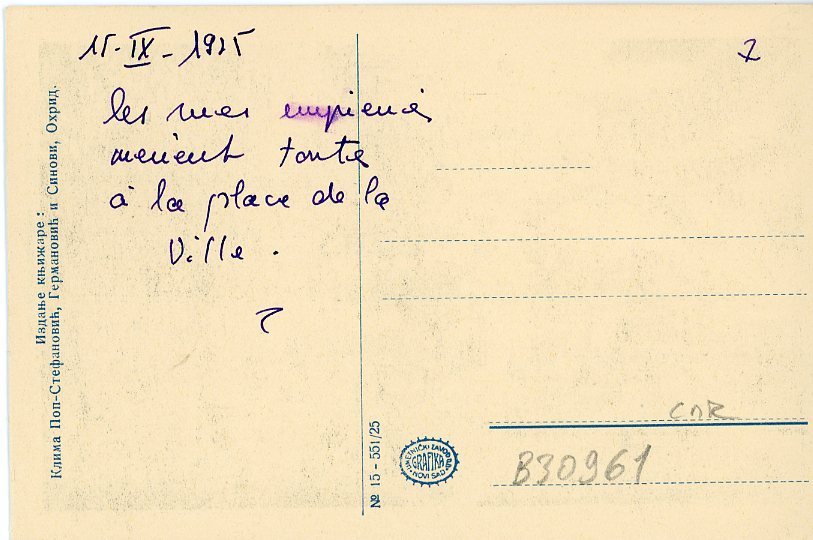 15-IX-1925
les rues
mènent toutes
à la place de la
Ville.
7
Издање књижаре:
Клима Поп-Стефановић, Германовић и Синови, Охрид.
№ 15 - 551/25
UMETNIČKI ZAVOD D.D.
GRAFIKA
NOVI SAD
B30961